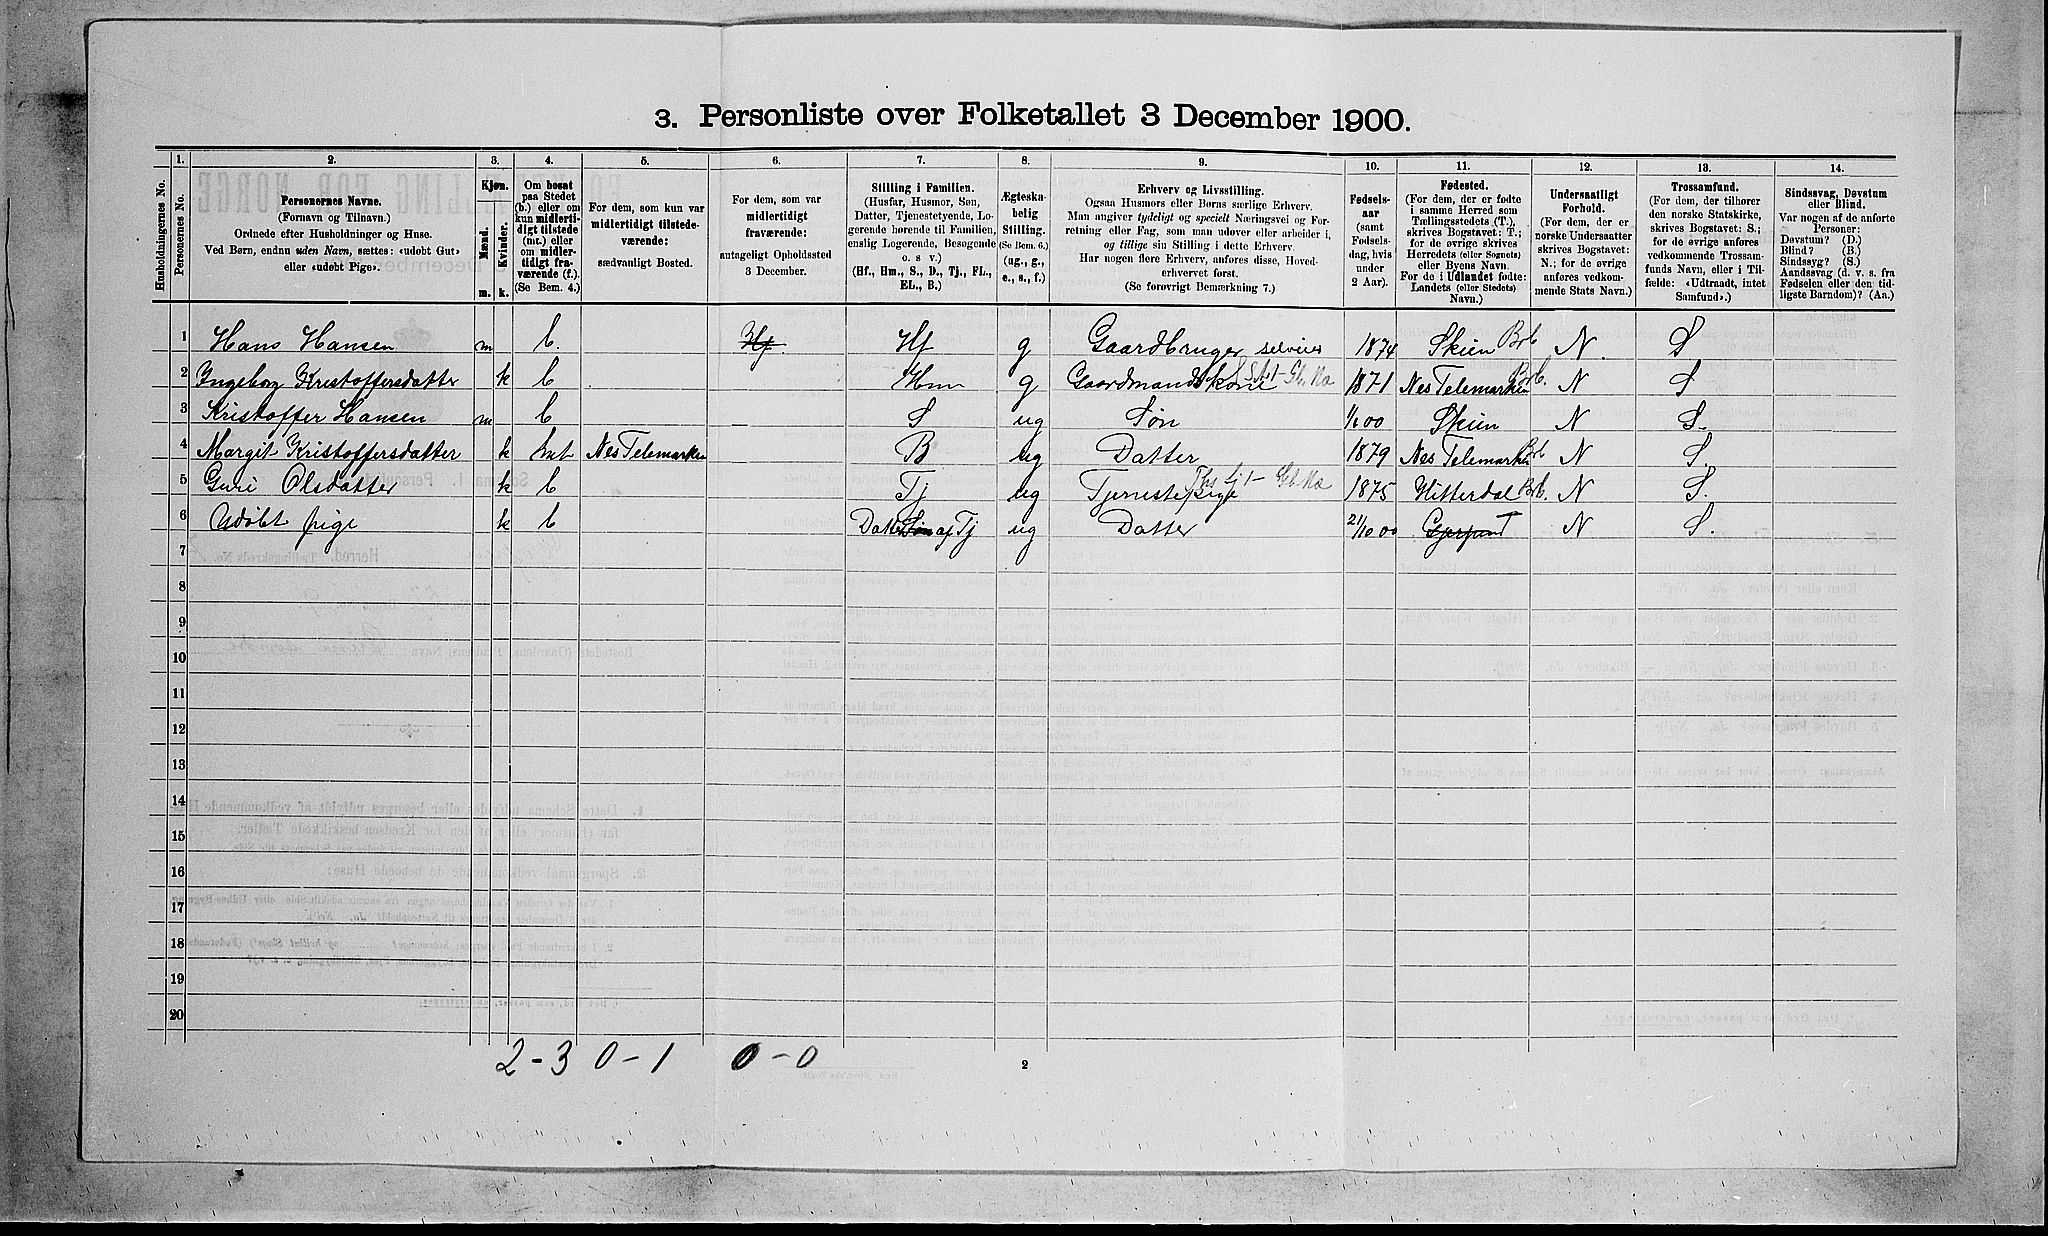 3. Personliste over Folketallet 3 December 1900.
1. 2. 3. 4. 5. 6. 7. 8. 9. 10. 11. 12. 13. 14.
Husholdningernes No.
Personernes No.
Personernes Navne.
(Fornavn og Tilnavn.)
Ordnede efter Husholdninger og Huse.
Ved Børn, endnu uden Navn, sættes: «udøbt Gut»
eller «udøbt Pige».
Kjøn.
Mænd.
Kvinder.
m. k.
Om bosat
paa Stedet
(b.) eller om
kun midlerti-
digt tilstede
(mt.) eller
om midler-
tidigt fra-
værende (f.).
(Se Bem. 4.)
For dem, som kun var
midlertidigt tilstede-
værende:
sædvanligt Bosted.
For dem, som var
midlertidigt
fraværende:
antageligt Opholdssted
3 December.
Stilling i Familien.
(Husfar, Husmor, Søn,
Datter, Tjenestetyende, Lo-
gerende hørende til Familien,
enslig Logerende, Besøgende
o. s. v.)
(Hf., Hm., S., D., Tj., FL.,
EL., B.)
Ægteska-
belig
Stilling.
(Se Bem. 6.)
(ug., g.,
e., s., f.)
Erhverv og Livsstilling.
Ogsaa Husmors eller Børns særlige Erhverv.
Man angiver tydeligt og specielt Næringsvei og For-
retning eller Fag, som man udover eller arbeider i,
og tillige sin Stilling i dette Erhverv.
Har nogen flere Erhverv, anføres disse, Hoved-
erhvervet først.
(Se forøvrigt Bemærkning 7.)
Fødsels-
aar
(samt
Fødsels-
dag, hvis
under
2 Aar).
Fødested.
(For dem, der er fødte
i samme Herred som
Tællingsstedets (T.),
skrives Bogstavet: T.;
for de øvrige skrives
Herredets (eller Sognets)
eller Byens Navn.
For de i Udlandet fødte:
Landets (eller Stedets)
Navn.)
Undersaatligt
Forhold.
(For dem, der er
norske Undersaatter
skrives Bogstavet:
N.; for de øvrige
anføres vedkom-
mende Stats Navn.)
Trossamfund.
(For dem, der tilhører
den norske Statskirke,
skrives Bogstavet: S.;
for de øvrige anføres
vedkommende Trossam-
funds Navn, eller i Til-
fælde: «Udtraadt, intet
Samfund».)
Sindssvag, Døvstum
eller Blind.
Var nogen af de anførte
Personer:
Døvstum? (D.)
Blind? (B.)
Sindssyg? (S.)
Aandssvag (d. v. s. fra
Fødselen eller den tid-
ligste Barndom)? (Aa.)
1 Hans Hansen m b. Hf. Hf g Gaardbruger selveier 1874 Skien Brb N. S
2 Ingeborg Kristoffersdatter k b Hm g Gaardmandskone 1871 Nes Telemarken Brb. N S
3 Kristoffer Hansen m b S ug Søn 1/6 00 Skien N S.
4 Margit Kristoffersdatter k mt Nes Telemarken B ug Datter 1879 Nes Telemarken Brb N S.
5 Guri Olsdatter k b Tj ug Tjenestepige 1875 Hitterdal Brb. N S.
6 Udøbt pige k b Datter Søn af Tj ug Datter 21/10 00 Gjerpend T N S.
7
8
9
10
11
12
13
14
15
16
17
18
19
20
2 - 3 0 - 1 0 - 0 2